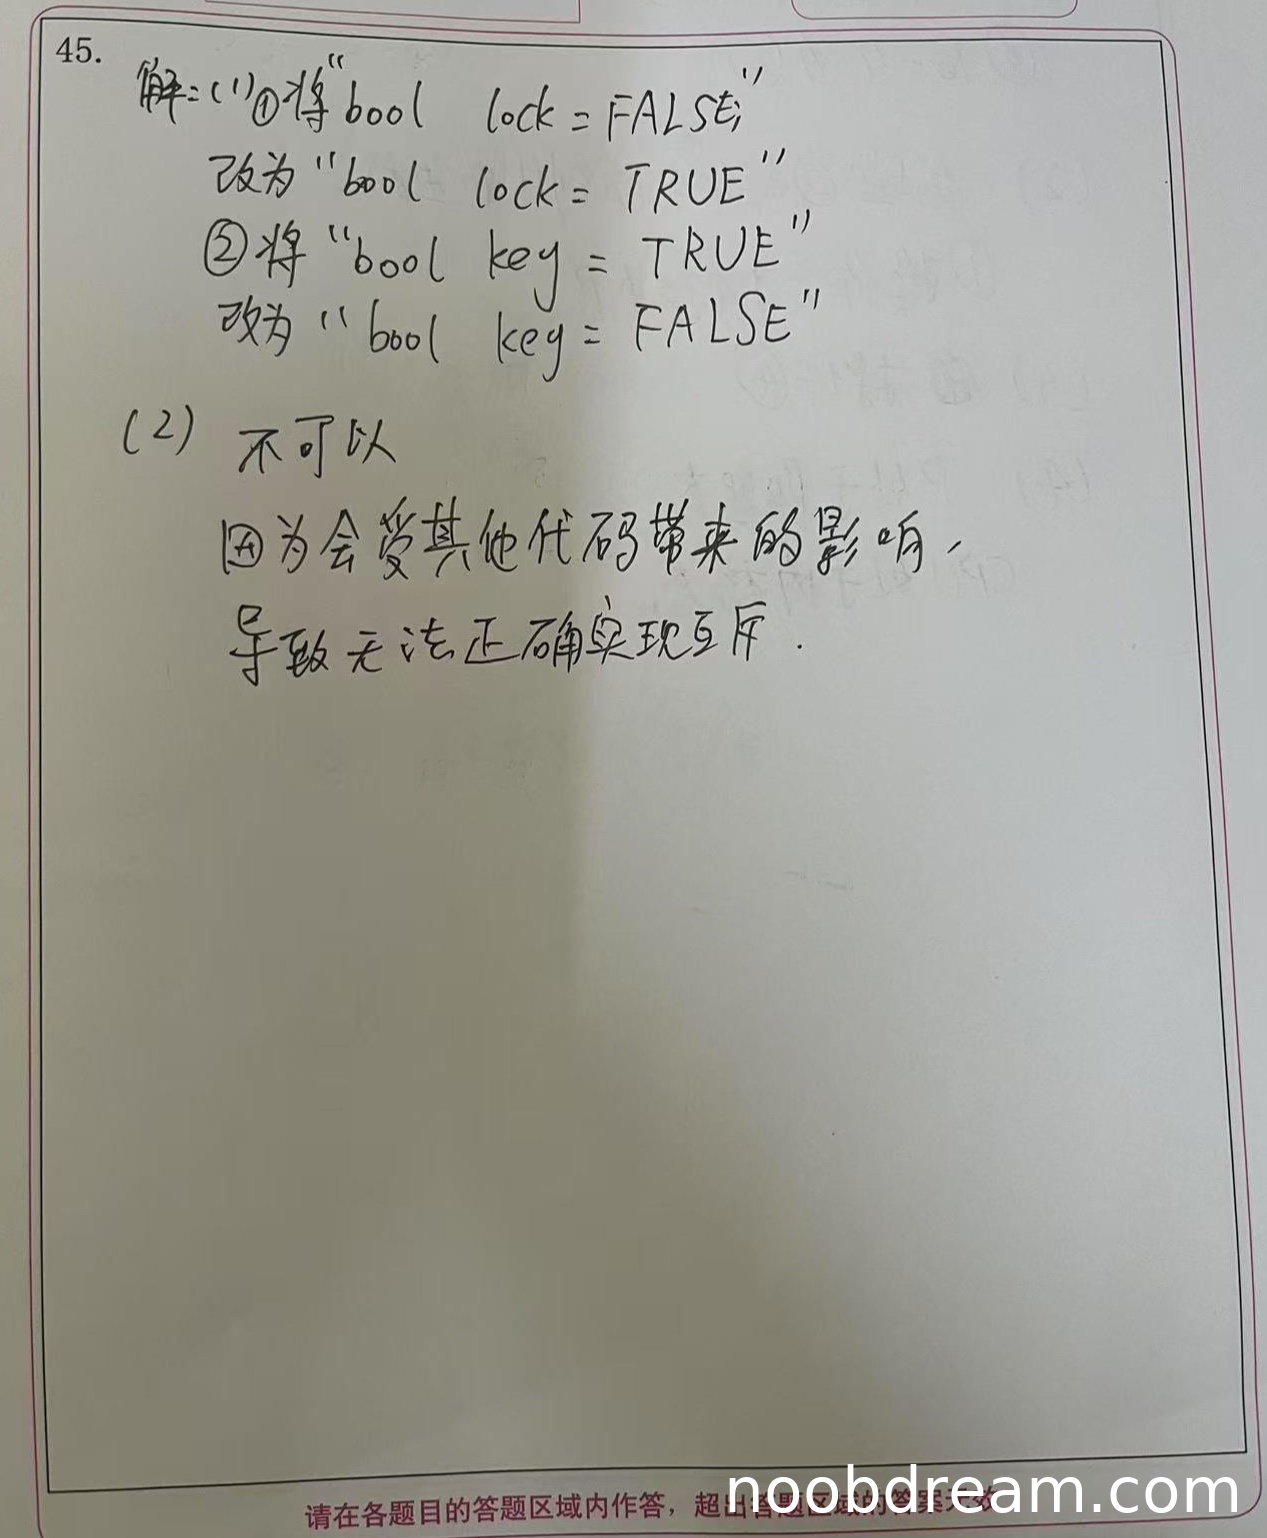 45.
解:(1)①将"bool lock = FALSE;"
改为"bool lock = TRUE"
②将"bool key = TRUE"
改为"bool key = FALSE"
(2) 不可以
因为会受其他代码带来的影响,
导致无法正确实现互斥.
请在各题目的答题区域内作答,超出答题区域的答案无效
noobdream.com